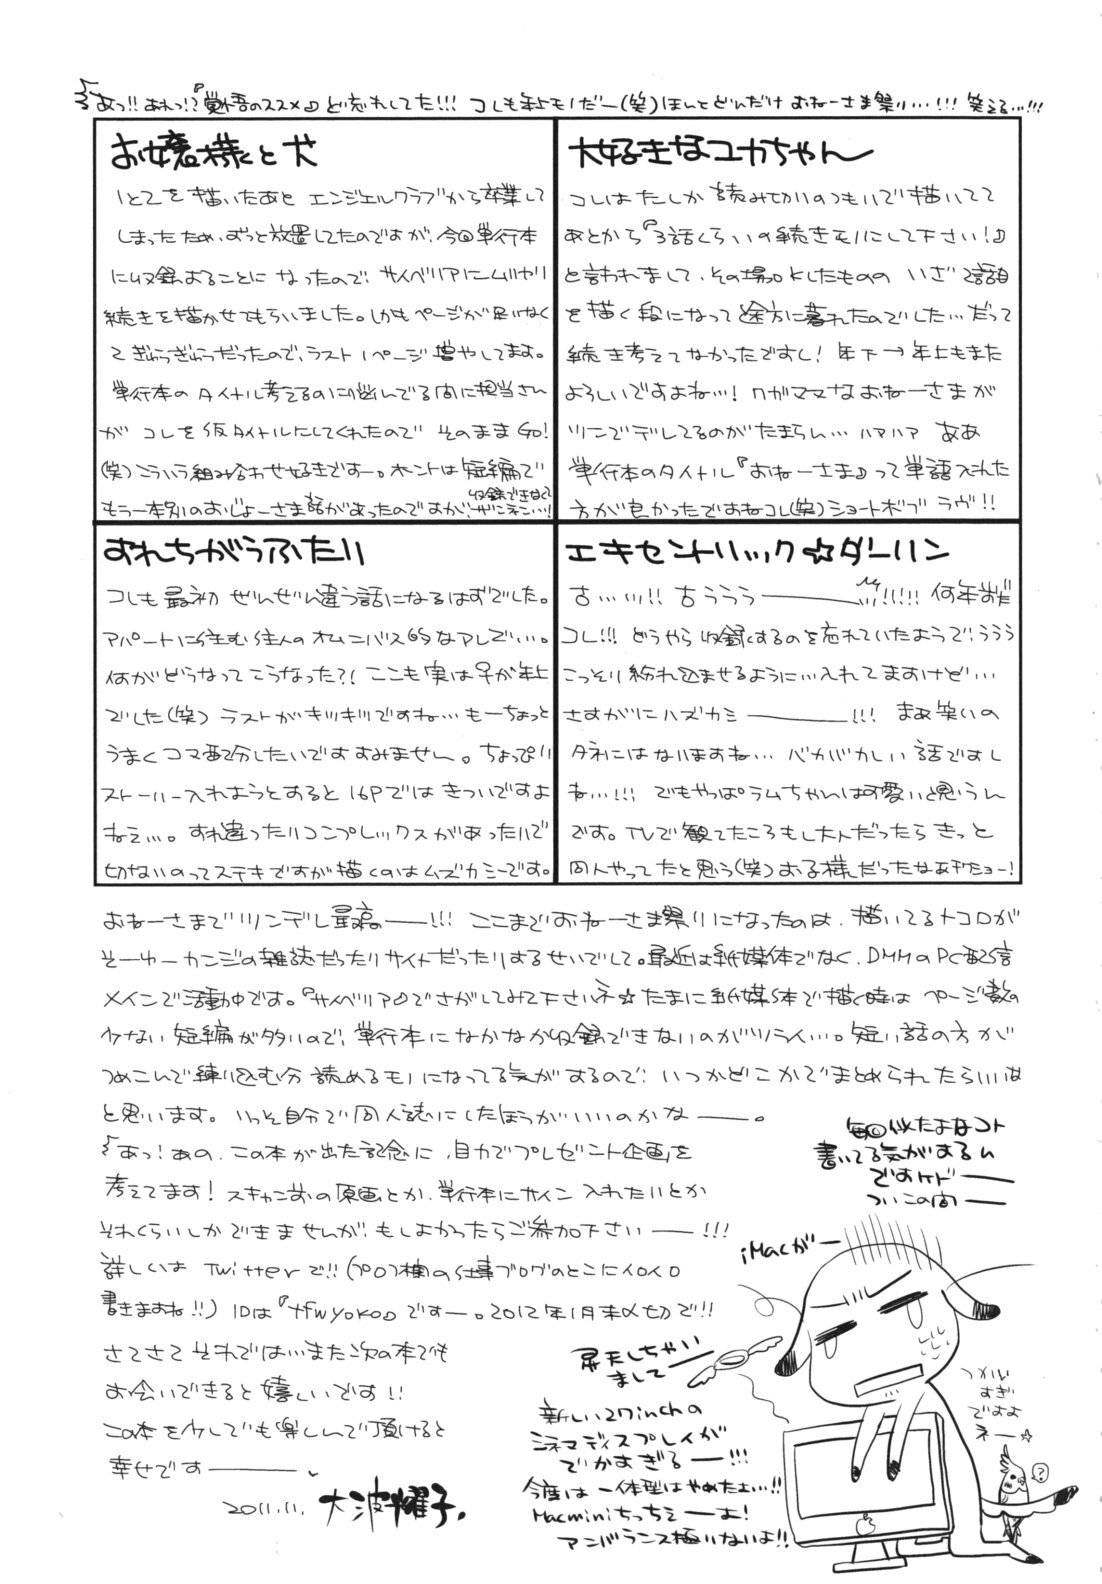 あっ!!あれっ!?『覚悟のススメ』ど忘れしてた!!! コレも年上モノだー(笑)ほんとどんだけおねーさま祭り…!!! 笑える…!!!
お嬢様と犬
1とこを描いたあと エンジェルクラブから卒業して
しまったため、ずっと放置してたのですが、今回単行本
に収録することになったので、サイベリアにムリヤリ
続きを描かせてもらいました。しかもページが足りなく
てぎゅうぎゅうだったので、ラスト1ページ増やしてます。
単行本のタイトル考えるのに悩んでる間に担当さん
が コレを仮タイトルにしてくれたので そのままGO!
(笑)こういう組み合わせ好きですー。ホントは短編で
もう一本別のおじょーさま話があったのですが、収録できなくてザンネン…!
大好きなユカちゃん
コレはたしか読み切りのつもりで描いてて
あとから『3話くらいの続きモノにして下さい!』
と言われまして、その場OKしたものの いざ2話目
を描く段になって途方に暮れたのでした…だって
続き考えてなかったですし! 年下→年上もまた
よろしいですよね…! ワガママなおねーさまが
ツンでデレてるのがたまらん…ハァハァ ああ
単行本のタイトル『おねーさま』って単語入れた
方が良かったですねコレ(笑)ショートボブ ラヴ!!
すれちがうふたり
コレも最初ぜんぜん違う話になるはずでした。
アパートに住む住人のオムニバス的なアレで…。
何がどうなってこうなった?! ここも実は♀が年上
でした(笑) ラストがキツキツですね…もーちょっと
うまくコマ配分したいですすみません。ちょっぴり
ストーリー入れようとすると16Pではきついですよ
ねぇ…。すれ違ったりコンプレックスがあったりで
切ないのってステキですが描くのはムズカシーです。
エキセントリック☆ダーリン
古…ッ!! 古ううう――…!!!!! 何年前だ
コレ!!! どうやら収録するのを忘れていたようで、ううう
こっそり紛れ込ませるように…入れてますけど…
さすがにハズカシ――!!! まあ笑いの
タネにはなりますね… バカバカしい話ですし
ね…!!! でもやっぱラムちゃんは可愛いと思うん
です。TVで観てたころもし大人だったらきっと
同人やってたと思う(笑)お子様だったなあチキショー!
おねーさまでツンデレ最高――!!! ここまでおねーさま祭りになったのは、描いてるトコロが
そーゆーカンジの雑誌だったりサイトだったりするせいでして。最近は紙媒体でなく、DMMのPC配信
メインで活動中です。『サイベリア』でさがしてみて下さいネ☆たまに紙媒体で描く時は ページ数の
少ない短編が多いので、単行本になかなか収録できないのがツライ…。短い話の方が
つめこんで練り込む分 読めるモノになってる気がするので、いつかどこかでまとめられたらいいな
と思います。いっそ自分で同人誌にしたほうがいいのかな――。
あっ!あの、この本が出た記念に、自力でプレゼント企画を
考えてます! スキャン前の原画とか、単行本にサイン入れたいとか
それくらいしかできませんが、もしよかったらご参加下さい――!!!
詳しくは Twitterで!!(プロフ欄の仕事ブログのとこにイロイロ
書きますね!!) IDは『tfwyoko』ですー。2012年1月末〆切で!!
さてさて それでは…また次の本でも
お会いできると嬉しいです!!
この本を少しでも楽しんで頂けると
幸せです――。
2011.11. 大波耀子.
毎回似たよなコト
書いてる気がするん
ですケドー
ついこの間――
iMacがー
昇天しちゃい
まして
新しい27inchの
シネマディスプレイが
でかすぎるー!!!
今度は一体型はやめたよ…!!
Macminiちっちぇーよ!
アンバランス極りないよ!!
つかい
すぎ
ですよ
ネー☆
?